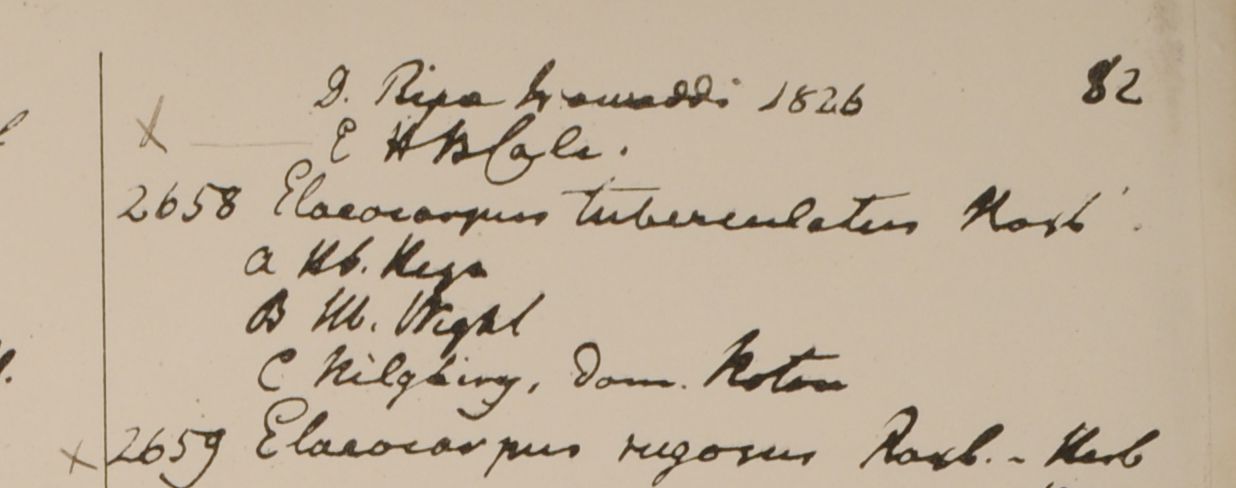 82
D. Ripa Irawaddi 1826
E HBCalc.
2658 Elaeocarpus tuberculatus Roxb.
a Hb. Heyn
B Hb. Wight
C Nilghiry, Dom. Noton
2659 Elaeocarpus rugosus Roxb. - Herb